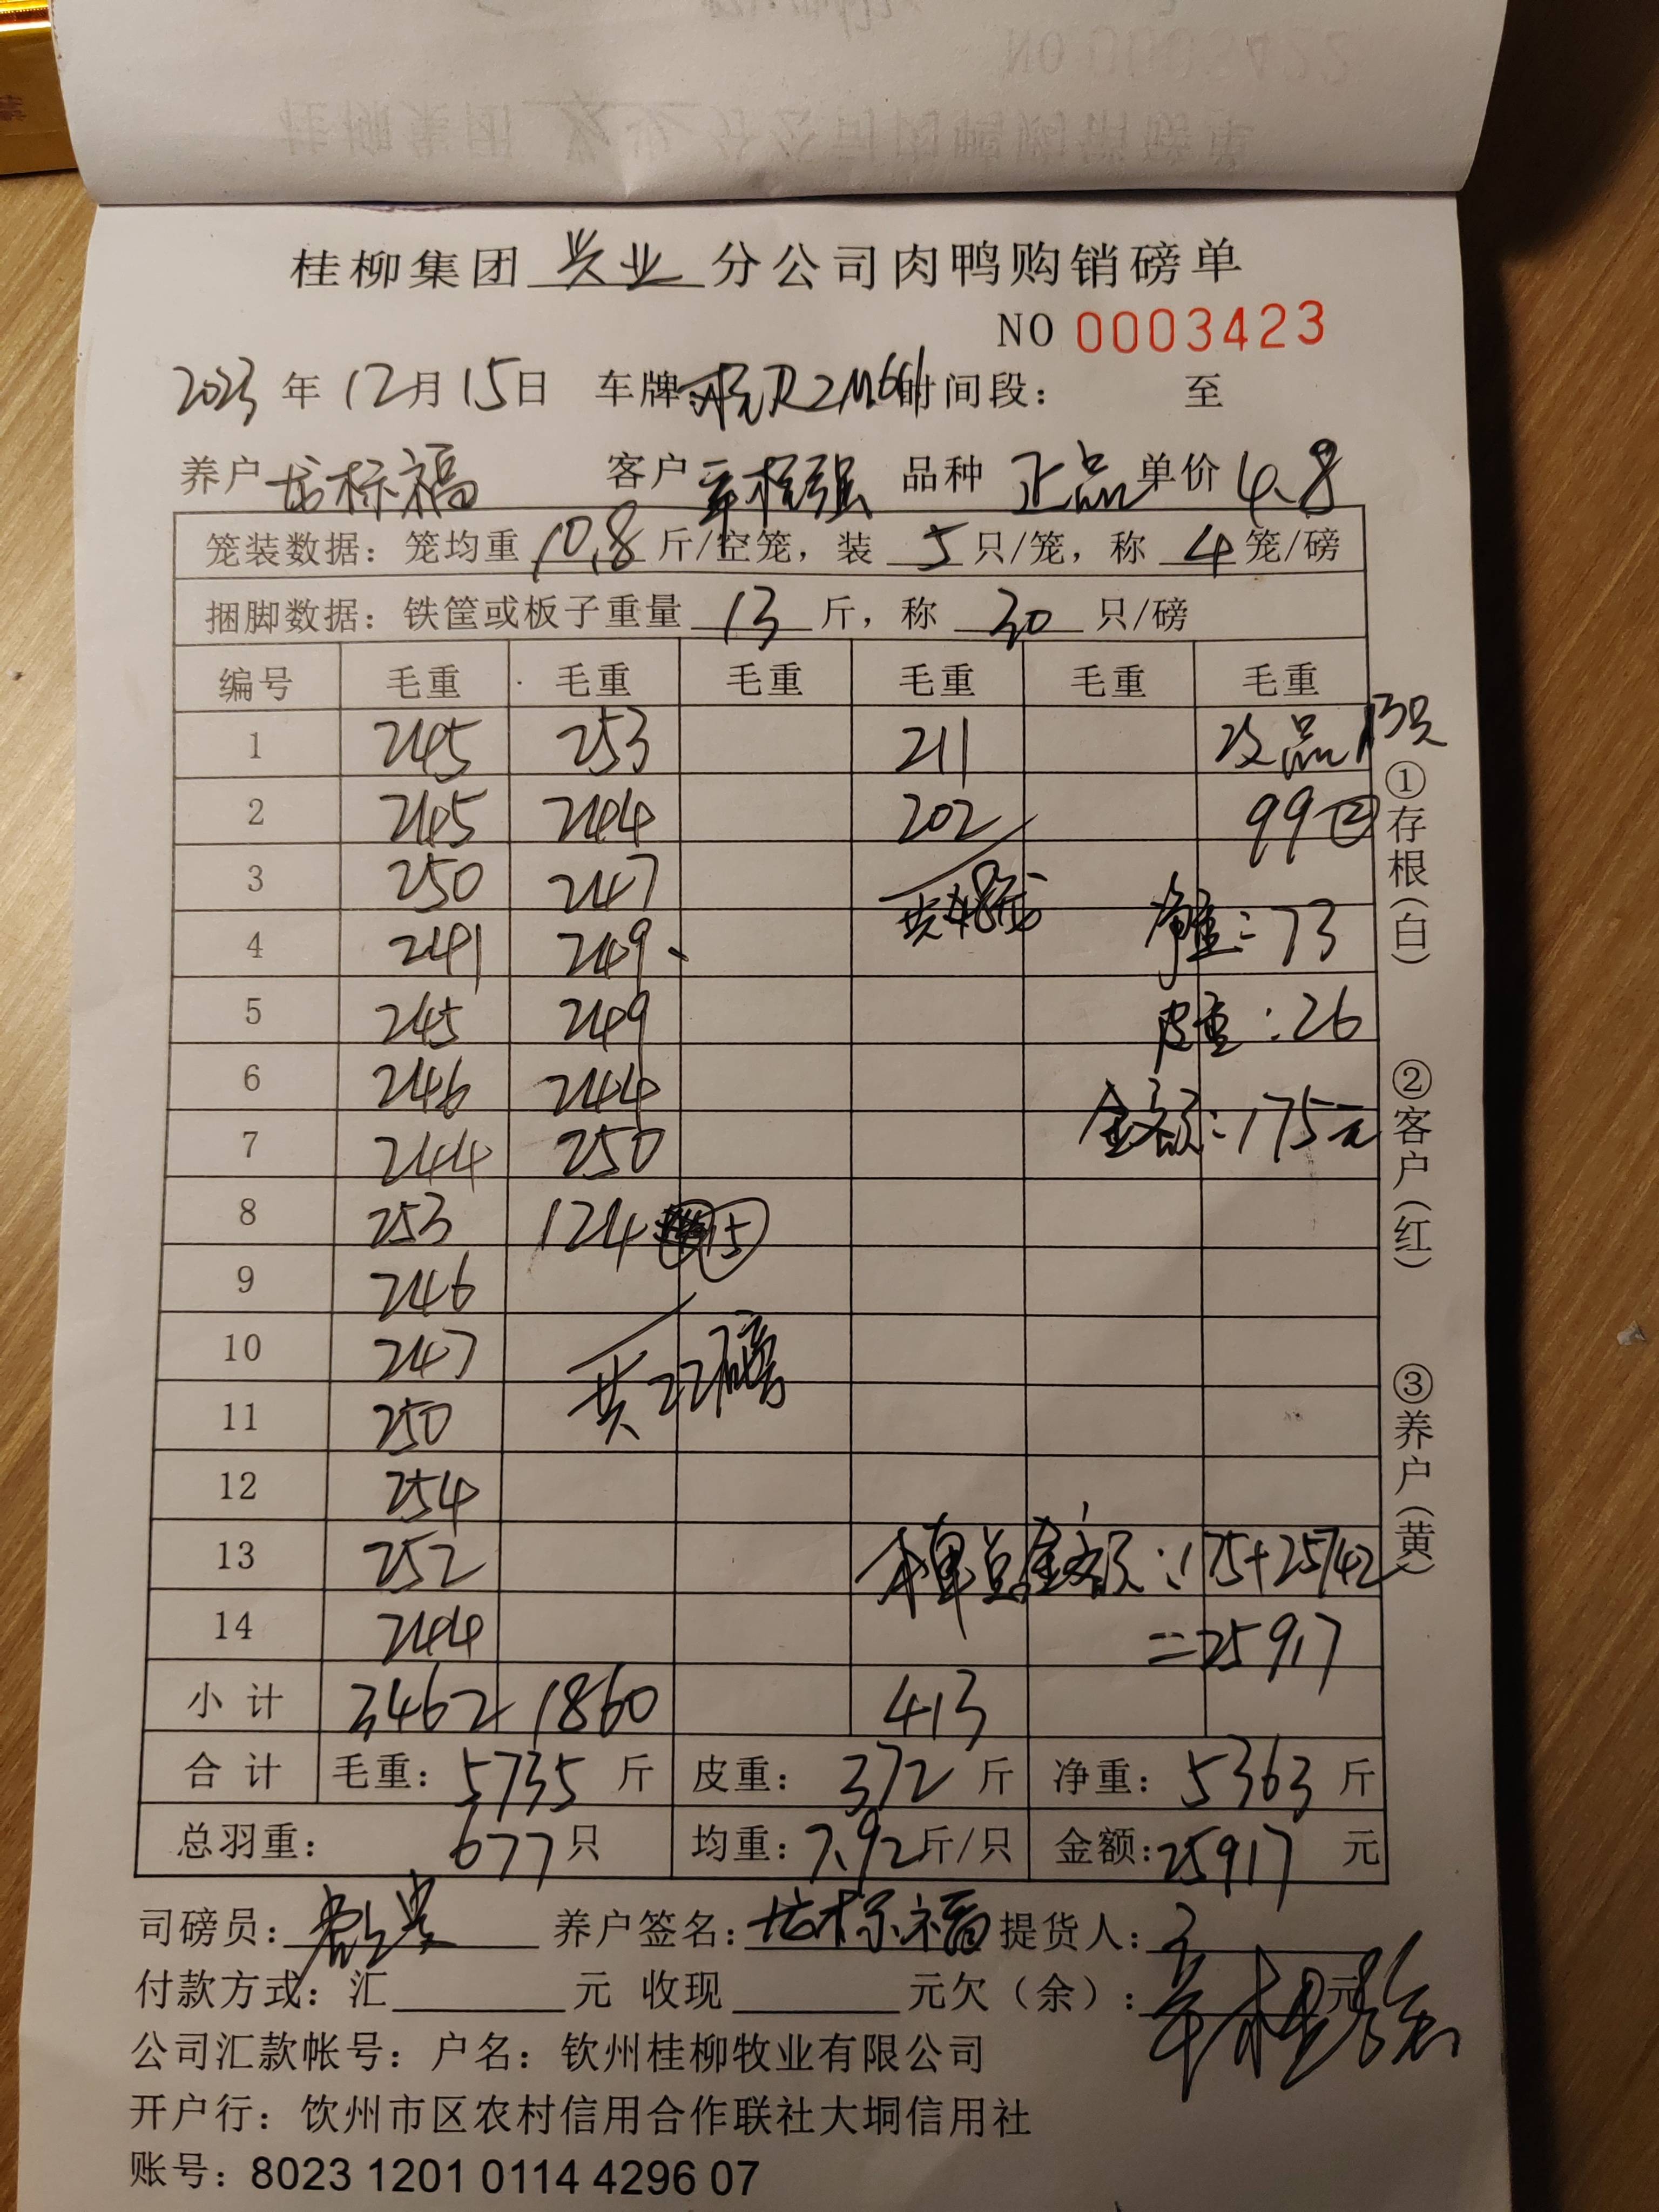 桂柳集团 兴业 分公司肉鸭购销磅单
NO 0003423
2023年12月15日 车牌 时间段： 至
养户 标福 客户 强 品种 正品 单价 4.8
笼装数据：笼均重 10.8 斤/空笼，装 5 只/笼，称 4 笼/磅
捆脚数据：铁筐或板子重量 13 斤，称 30 只/磅
编号 毛重 毛重 毛重 毛重 毛重 毛重
1 245 253 211 次品13只
2 245 244 202 99②
3 250 247
4 241 249 净重：73
5 245 249 皮重：26
6 246 244 金额：175元
7 244 250
8 253 124 15
9 246
10 247 共22磅
11 250
12 254
13 252 本单总金额：175+25742
14 244 =25917
小计 3462 1860 413
合计 毛重：5735斤 皮重：372斤 净重：5363斤
总羽重：677只 均重：7.92斤/只 金额：25917元
司磅员： 养户签名： 标福 提货人：
付款方式：汇 元 收现 元欠（余）： 元
公司汇款帐号：户名：钦州桂柳牧业有限公司
开户行：饮州市区农村信用合作联社大垌信用社
账号：8023 1201 0114 4296 07
①存根（白）
②客户（红）
③养户（黄）